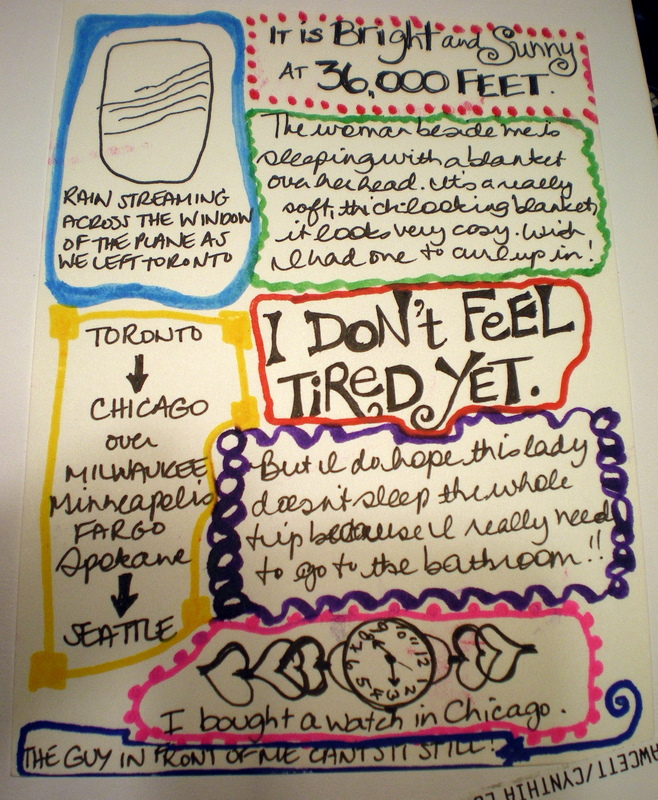 IT is Bright and Sunny
AT 36,000 FEET.
RAIN STREAMING
ACROSS THE WINDOW
OF THE PLANE AS
WE LEFT TORONTO
The woman beside me is
sleeping with a blanket
over her head. It's a really
soft, thick looking blanket,
it looks very cosy. Wish
I had one to curl up in!
I DON't FeEL
TiReD YET.
TORONTO
CHICAGO
over
MILWAUKEE
Minneapolis
FARGO
Spokane
SEATTLE
But I do hope this lady
doesn't sleep the whole
trip because I really need
to go to the bathroom!!
9 10 11 12
8 1
7 2
6 5 4 3
I bought a watch in Chicago.
THE GUY IN FRONT OF ME CAN'T SIT STILL!
AWCETT/CYNTHIA